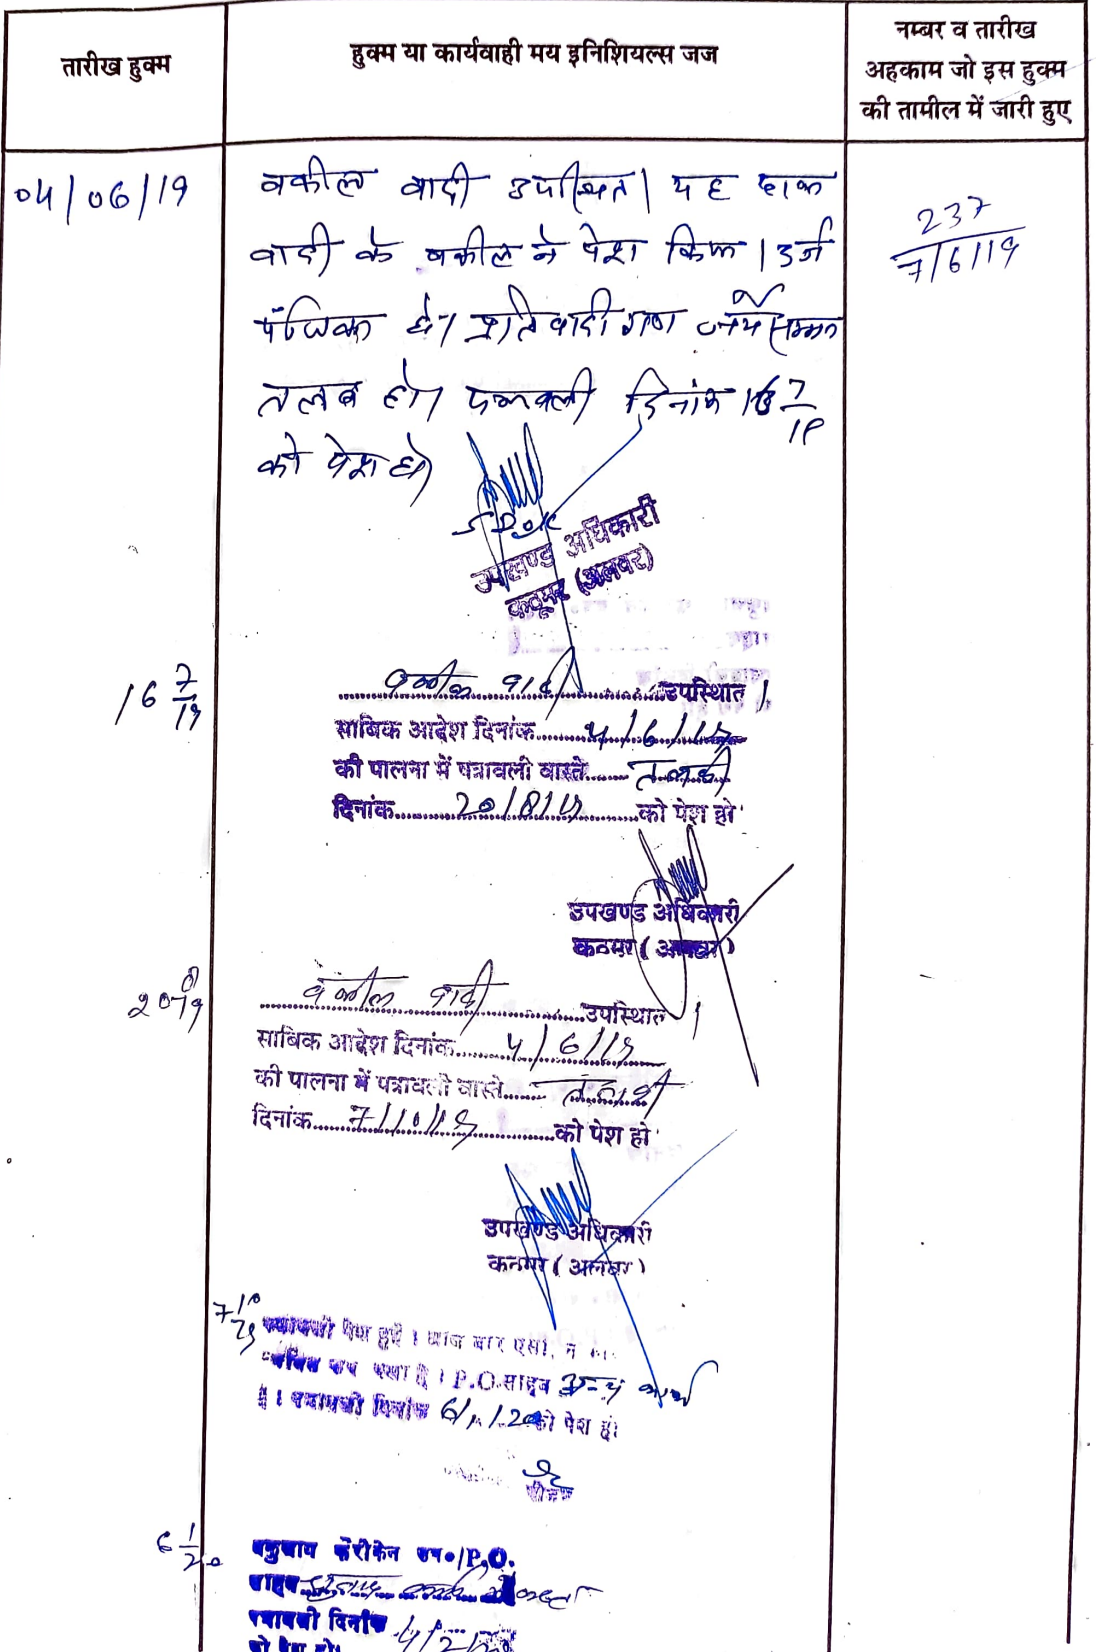 तारीख हुक्म
हुक्म या कार्यवाही मय इनिशियल्स जज
नम्बर व तारीख
अहकाम जो इस हुक्म
की तामील में जारी हुए
04/06/19
वकील वादी उपस्थित। यह
वादी के वकील ने पेश किया। दर्ज
हो। प्रतिवादी गण जर्ये सम्मन
तलब हो। पत्रावली दिनांक 16 7/19
को पेश हो
237
7/6/19
SDO
उपखण्ड अधिकारी
कठूमर (अलवर)
16 7/19
वकील वादी उपस्थित।
साबिक आदेश दिनांक 4/6/19
की पालना में पत्रावली वास्ते तलबी
दिनांक 20/8/19 को पेश हो
उपखण्ड अधिकारी
कठूमर (अलवर)
20 8/19
वकील वादी उपस्थित।
साबिक आदेश दिनांक 4/6/19
की पालना में पत्रावली वास्ते तलबी
दिनांक 7/10/19 को पेश हो
उपखण्ड अधिकारी
कठूमर (अलवर)
7 10/19
पत्रावली पेश हुई। आज बार एसो.
है। P.O. साहब अन्य कार्य
है। पत्रावली दिनांक 6/1/20 को पेश हो
रीडर
6 1/20
P.O.
साहब
पत्रावली दिनांक
को पेश हो